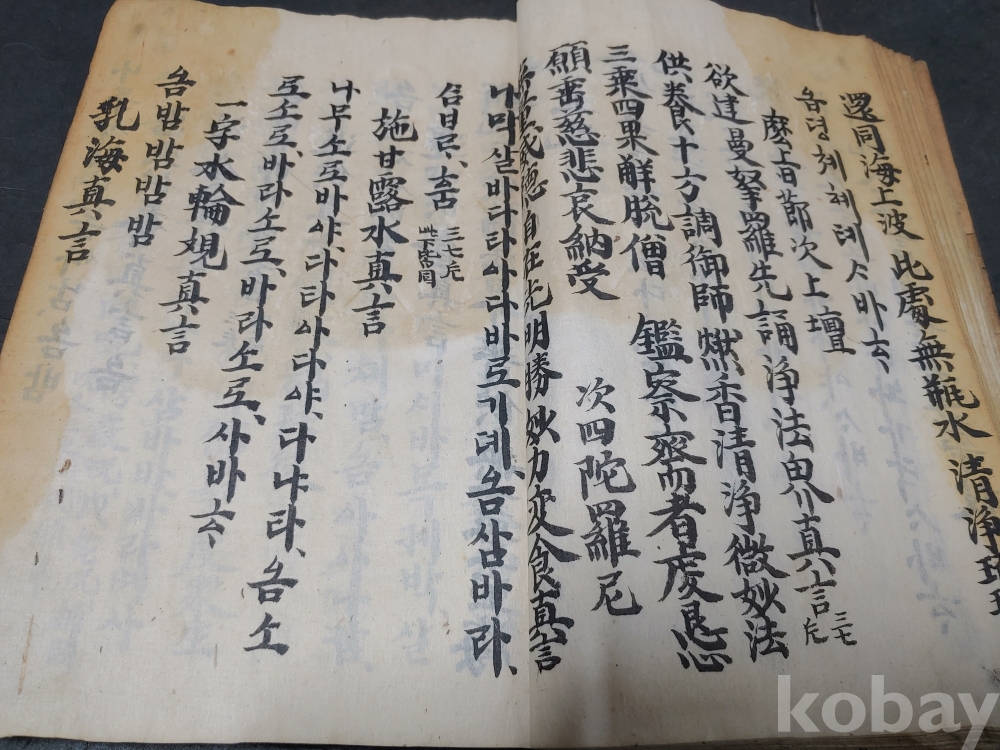 還同海上波 此處無甁水 清淨
옴녕체체데스바하
麽上旨節次上壇
欲建曼拏羅先誦淨法界真言 三七斤
供養十方調御師燃香清淨微妙法
三乘四果解脫僧 鑑察齋者虔懇心
願垂慈悲哀納受 次四陀羅尼
威德自在光明勝妙力変食真言
나막살바다타아다바로기데옴삼바라、
삼바라、훔 三七斤 此下常同
施甘露水真言
나무소로바야、다타아다야、다냐타、옴소
로소로、바라소로、바라소로、사바하
一字水輪觀真言
옴밤밤밤밤
乳海真言
kobay